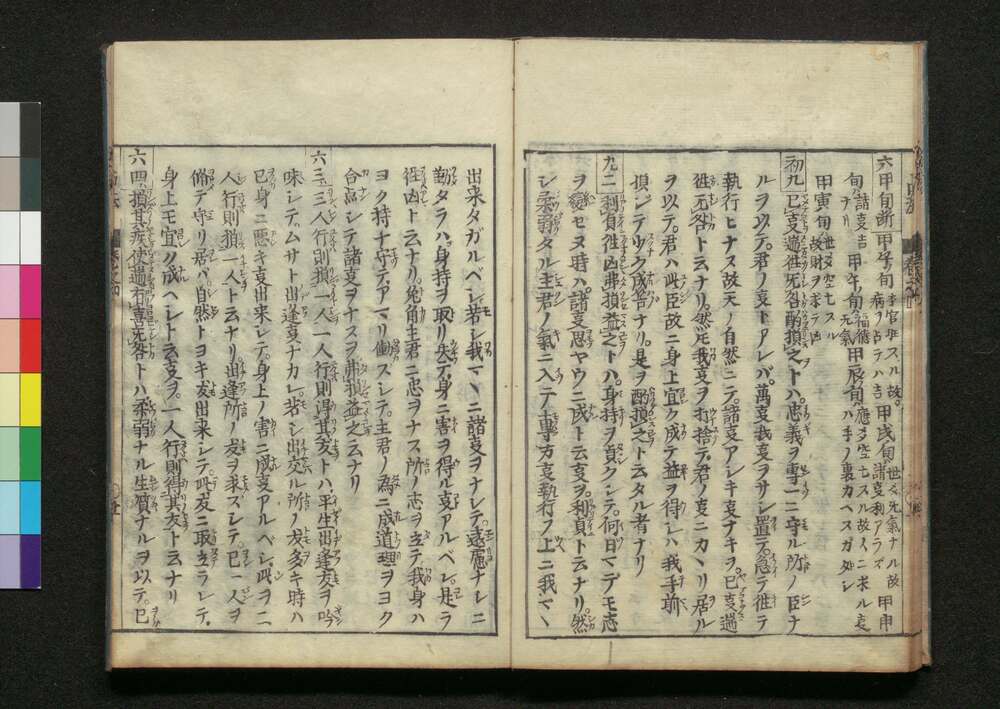 六甲旬断 甲子旬 子官旺スル故 病ヲ占テハ吉 甲戌旬 世爻死氣ナル故 諸叓利アラズ 甲申
旬 諸叓吉ナリ 甲午旬 福徳 元氣 甲辰旬 應爻空亡スル故人ニ求ル叓ハ手ノ裏カヘスガ如シ
甲寅旬 世爻空亡スル故財ヲ求テ凶
初九 已叓遄徃无咎酌損之トハ忠義ヲ專一ニ守ル所ノ臣ナ
ルヲ以テ君ノ叓トアレバ萬叓我叓ヲサシ置テ急ラ徃テ
執行ヒナス故天ノ自然ニテ諸叓アシキ叓ナキヲ已叓遄
徃无咎ト云ナリ然𪜈我叓ヲ打捨テ君ノ叓ニカヽリ居ル
ヲ以テ君ハ此臣故ニ身上宜ク成テ益ヲ得レハ我手前
損ジテウスク成筈ナリ是ヲ酌損之ト云タル者ナリ
九二 利貞徃凶弗損益之トハ身持ヲ貞クシテ何日マデモ志
ヲ変セヌ時ハ諸叓思ヤウニ成ト云叓ヲ利貞ト云ナリ然
シ柔弱タル主君ノ氣ニ入テ專方叓執行フ上ニ我マヽ
出来タガルベシ若シ我マヽニ諸叓ヲナシテ遠慮ナシニ
勤タラハ身持ヲ取リ失テ身ニ害ヲ得ル叓アルベシ是ヲ
徃凶ト云ナリ兔角主君ニ忠ヲナス所ノ志ヲ立テ我身ハ
ヨク持ナ守テアマリ働スシテ主君ノ為ニ成道理ヲヨク
合点シテ諸叓ヲナスヲ弗損益之云ナリ
六三 三人行則損一人一人行則得其友トハ平生出逢友ヲ吟
味シテムサト出逢叓ナカレ若シ出交ル所ノ友多キ時ハ
已身ニ悪キ叓出来シテ身上ノ害ニ成叓アルベシ此ヲ三
人行則損一人ト云ナリ出逢所ノ友ヲ求スシテ已一人ヲ
脩テ守リ居バ自然トヨキ友出来シテ此友ニ取立ラレテ
身上モ宜ク成ヘシト云叓ヲ一人行則得其友ト云ナリ
六四 損其疾使遄有喜无咎トハ柔弱ナル生質ナルヲ以テ已